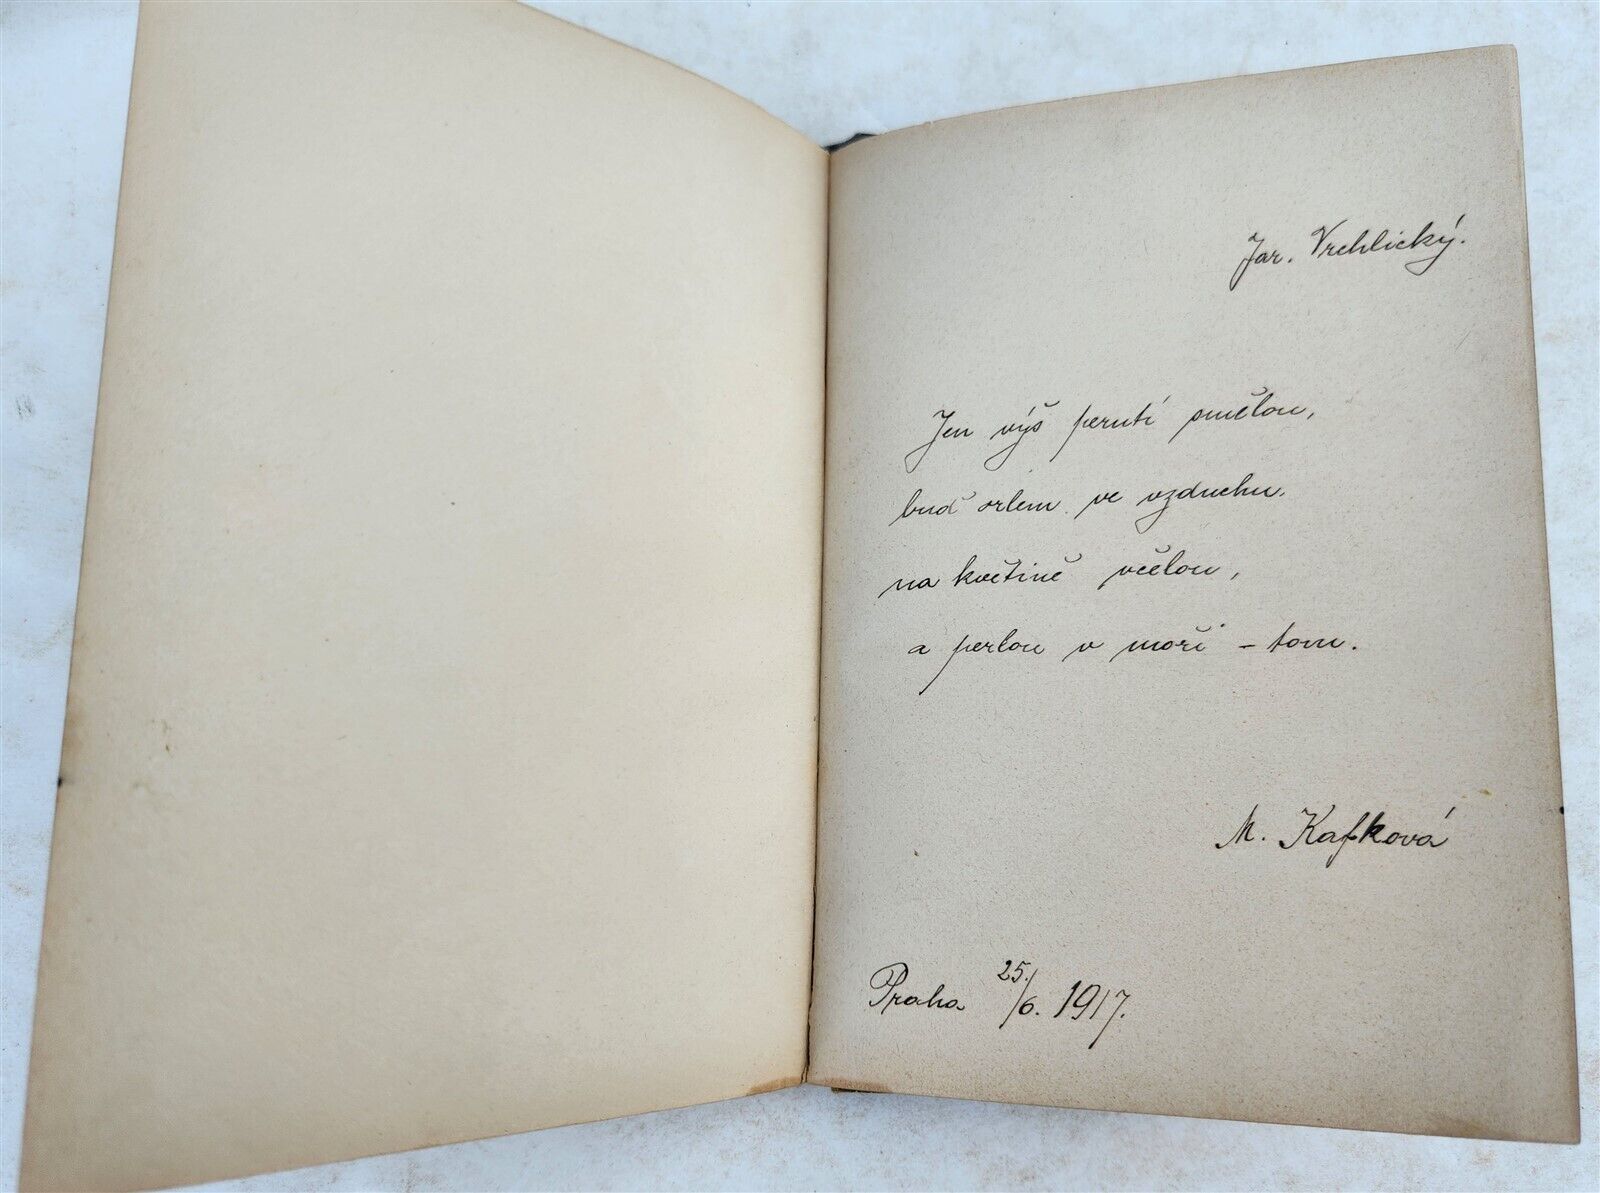 Jar. Vrchlický.
Jen výš perutí smělou,
buď orlem ve vzduchu.
na květině včelou,
a perlou v moři - tonu.
M. Kafková
Praha 25./6. 1917.